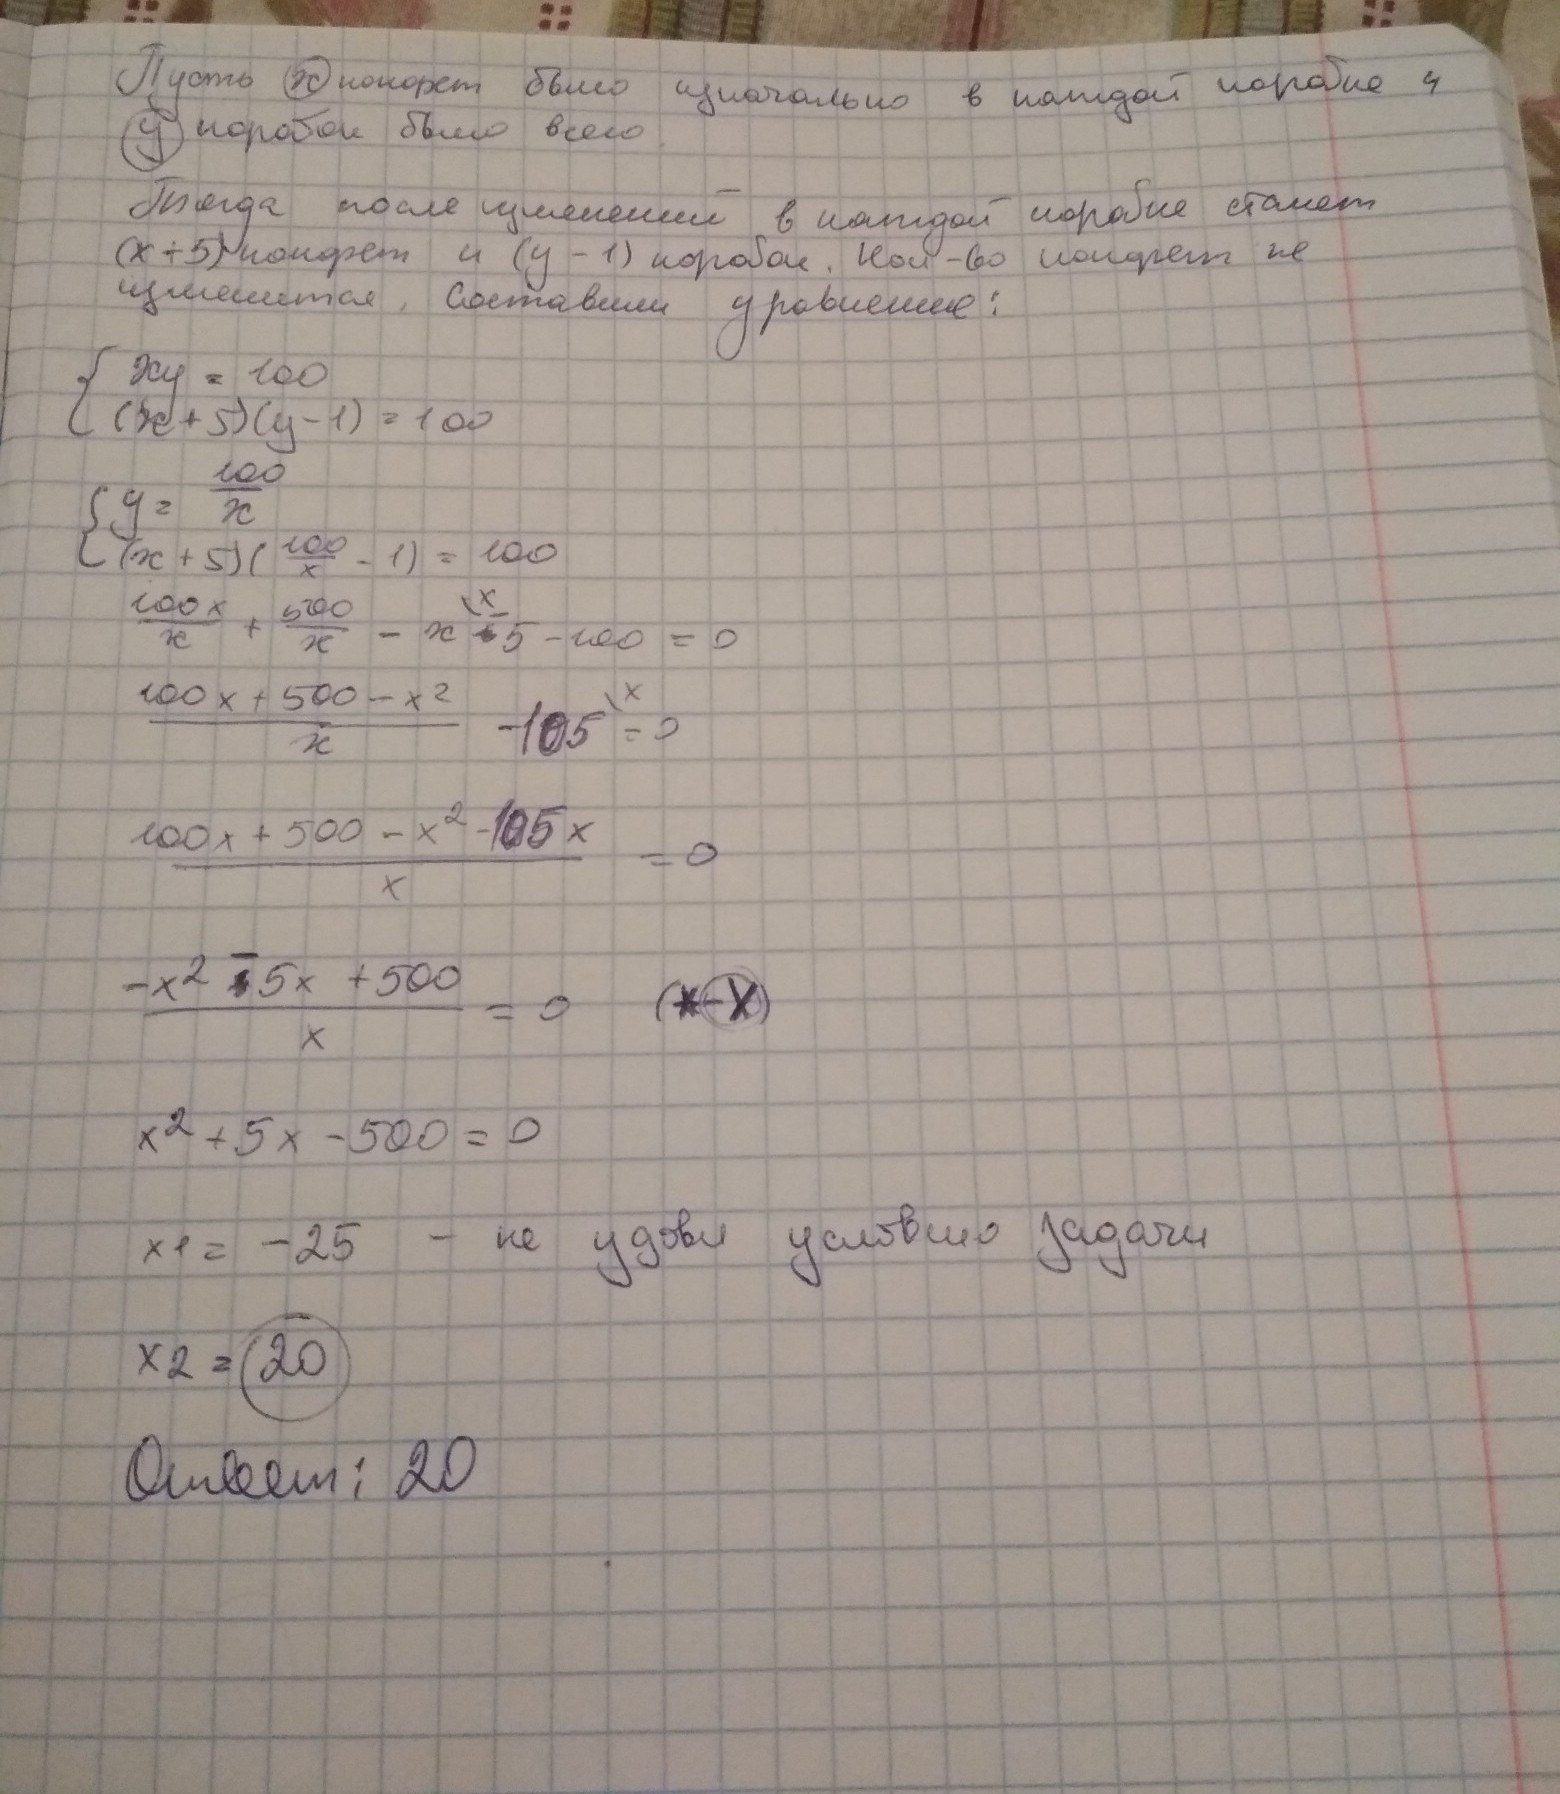 Пусть x конфет было изначально в каждой коробке и
y коробок было всего.
Тогда после изменений в каждой коробке станет
(x+5) конфет и (y-1) коробок. Кол-во конфет не
изменится. Составим уравнение:
{ xy = 100
{ (x+5)(y-1) = 100
{ y = 100/x
{ (x+5)(100/x - 1) = 100
100x/x + 500/x - x - 5 \x - 100 = 0
(100x + 500 - x²)/x - 105 \x = 0
(100x + 500 - x² - 105x)/x = 0
(-x² - 5x + 500)/x = 0 (-x)
x² + 5x - 500 = 0
x1 = -25 - не удовл условию задачи
x2 = 20
Ответ: 20